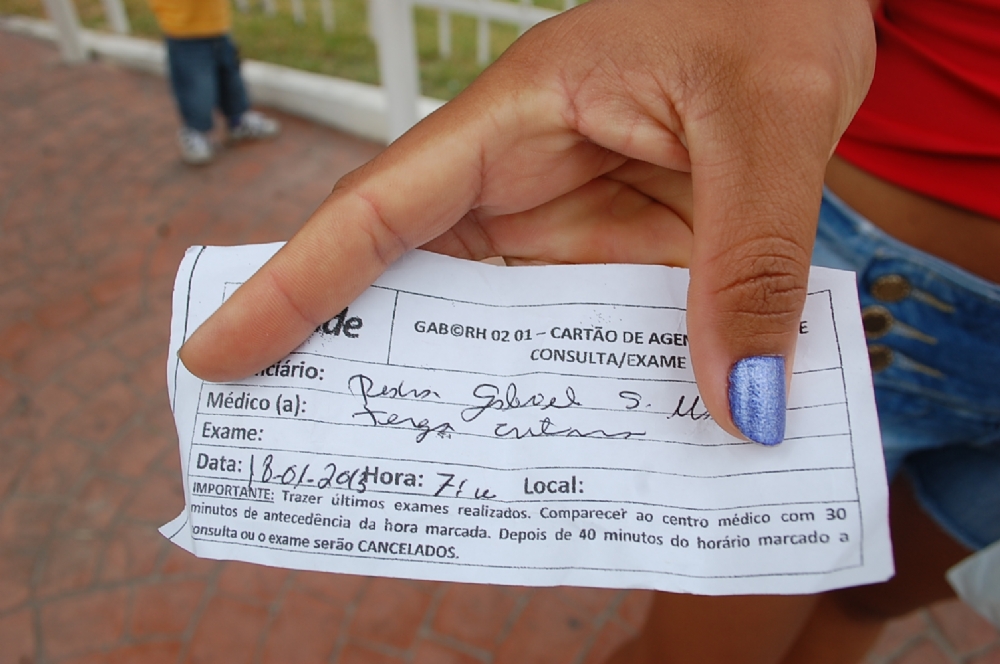 de
GAB©RH 02 01 – CARTÃO DE AGEN E
CONSULTA/EXAME
ciário: Pedro Gabriel S.
Médico (a):
Exame:
Data: 18-01-2013 Hora: Local:
IMPORTANTE: Trazer últimos exames realizados. Comparecer ao centro médico com 30
minutos de antecedência da hora marcada. Depois de 40 minutos do horário marcado a
onsulta ou o exame serão CANCELADOS.